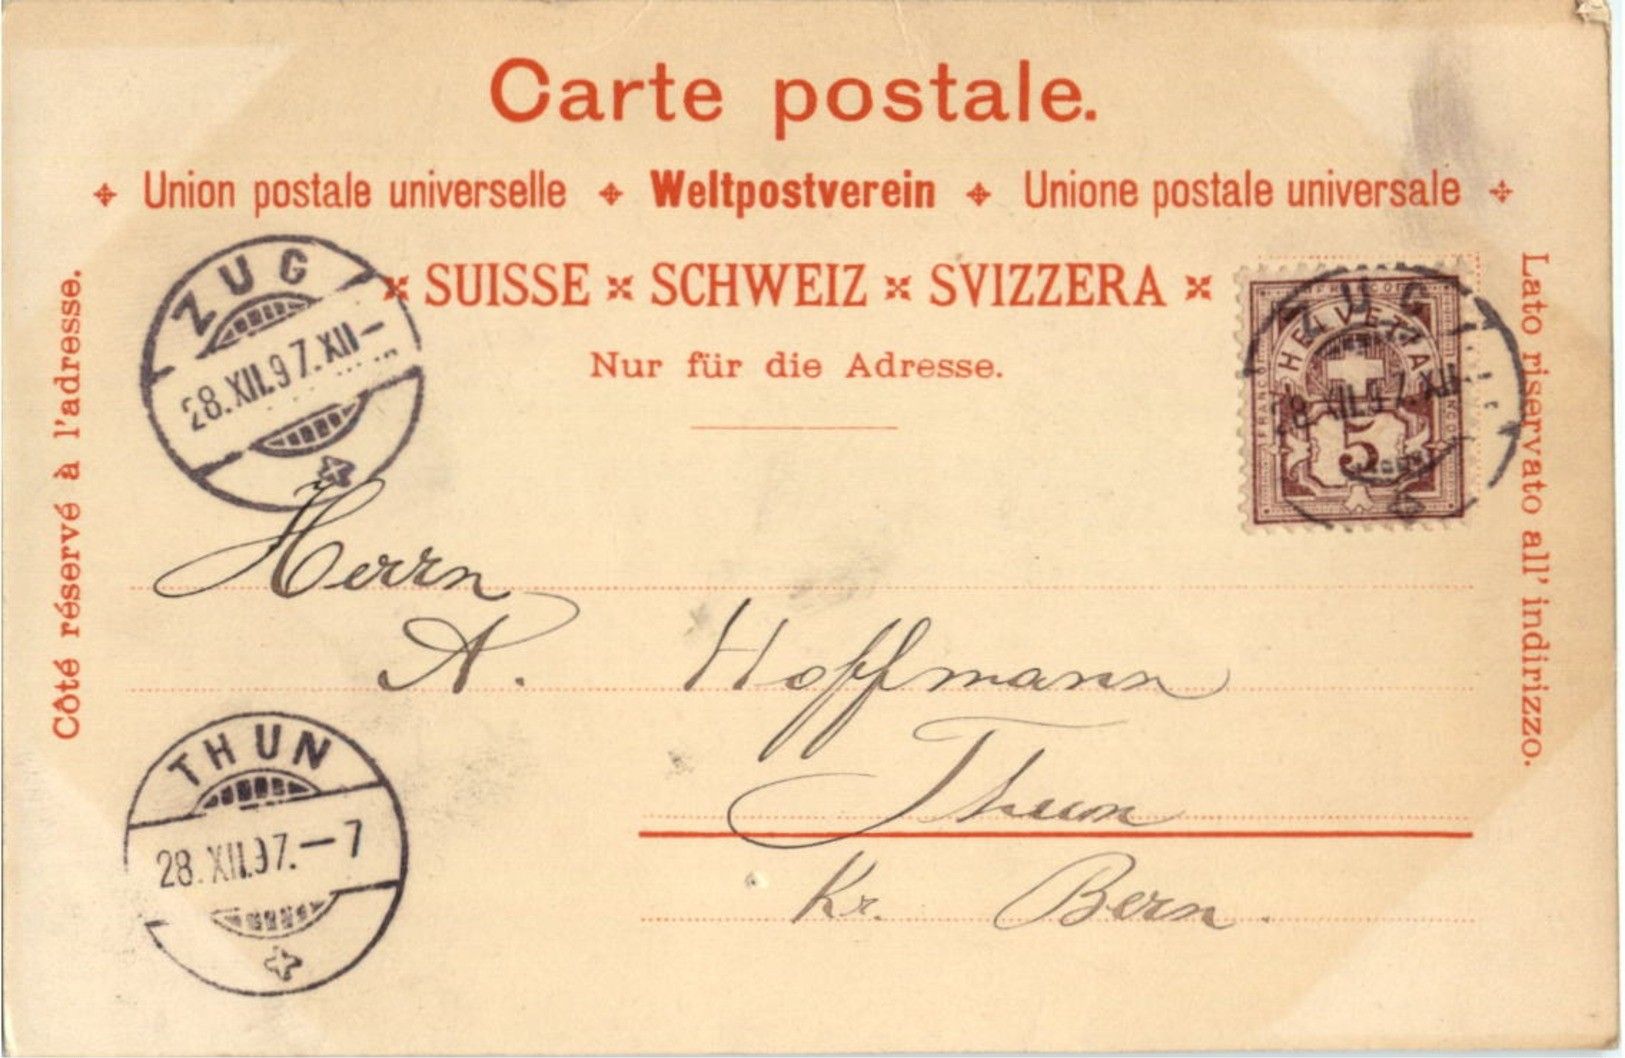 Carte postale.
Union postale universelle Weltpostverein Unione postale universale
SUISSE SCHWEIZ SVIZZERA
Nur für die Adresse.
Côté réservé à l'adresse.
Lato riservato all' indirizzo.
ZUG
28.XII.97.XII-
ZUG
28.XII.97.XII-
FRANCO
HELVETIA
5
Herrn
A. Hoffmann
Thun
Kt. Bern.
THUN
28.XII.97.-7